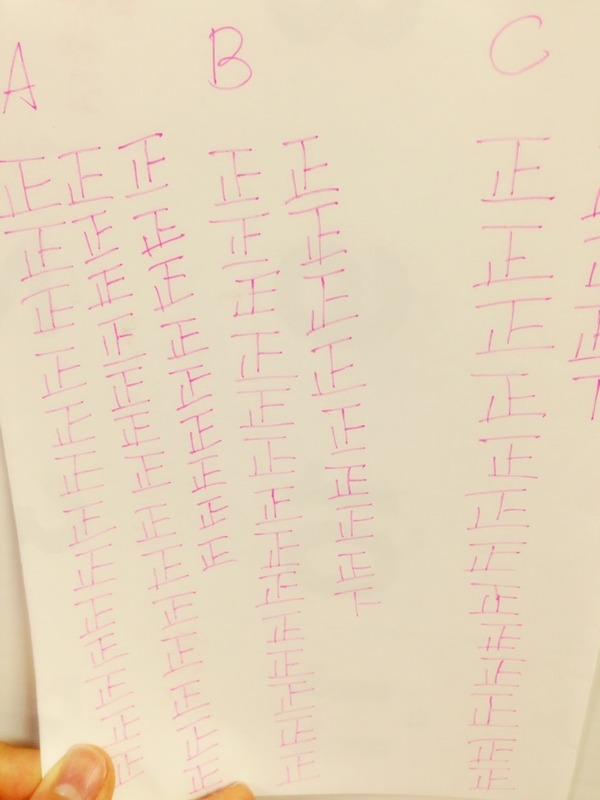 A B C
正正正 正正 正
正正正 正正 正
正正正 正正 正
正正正 正正 正
正正正 正正 正
正正正 正正 正
正正正 正正 正
正正正 正正 正
正正正 正丅 正
正正 正 正
正正 正 正
正正 正 正
正正 正 正
正 正